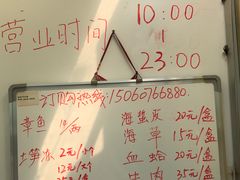 营业时间
10:00
23:00
订购热线:15060766880.
章鱼 10/两
土笋冻 2元/个
12元/
海蛎灰 20元/盒
海草 15元/盒
血蛤 20元/盒
牛肉 35元/